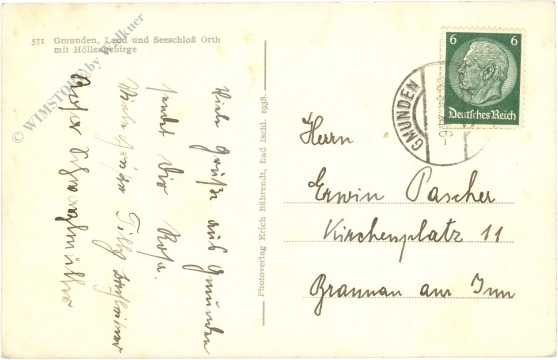 571 Gmunden, Land und Seeschloß Orth
mit Höllengebirge
Viele Grüße aus Gmunden
sendet Dir Rosa.
Viele Grüße Tilly
Photoverlag Erich Bährendt, Bad Ischl. 1938.
6 6
Deutsches Reich
GMUNDEN
Herrn
Erwin Pascher
Kirchenplatz 11
Braunau am Inn
© WIMSTORE by Walkner